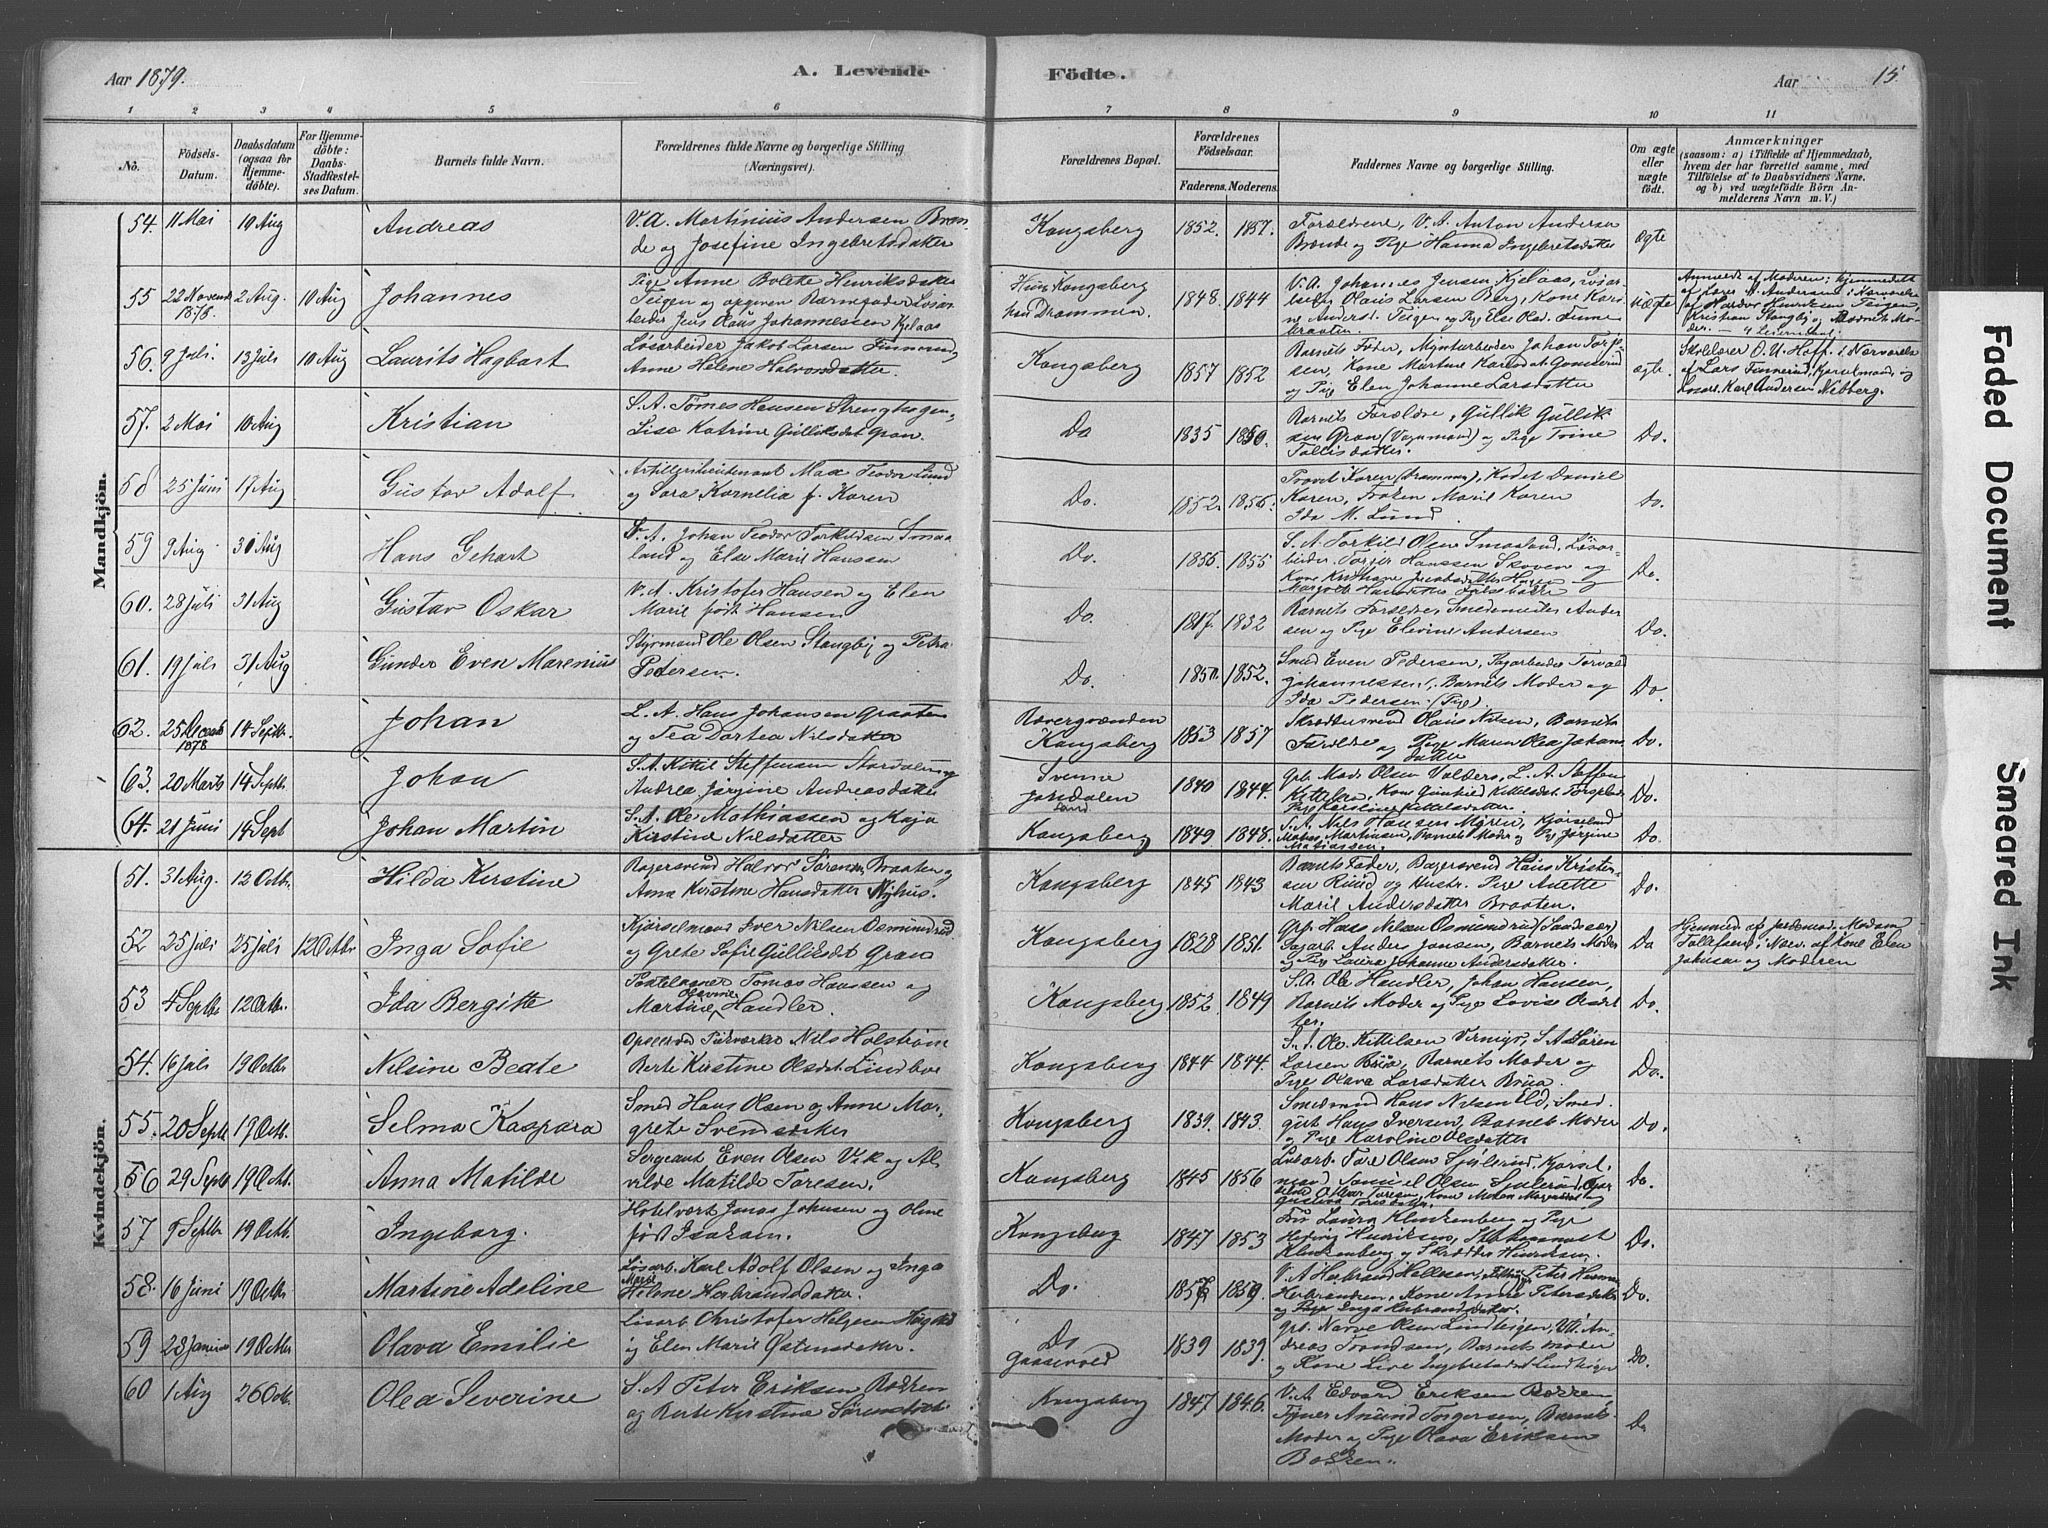 Aar 1879.
A. Levende Födte.
Aar
15.
1 2 3 4 5 6 7 8 9 10 11
No.
Födsels-Datum.
Daabsdatum (ogsaa for Hjemmedöbte).
For Hjemmedöbte: Daabs-Stadfæstelses Datum.
Barnets fulde Navn.
Forældrenes fulde Navne og borgerlige Stilling (Næringsvei).
Forældrenes Bopæl.
Forældrenes Födselsaar.
Faderens. Moderens.
Faddernes Navne og borgerlige Stilling.
Om ægte eller uægte födt.
Anmærkninger
(saasom: a) i Tilfælde af Hjemmedaab, hvem der har forrettet samme, med Tilföielse af to Daabsvidners Navne, og b) ved uægtefödte Börn Anmelderens Navn m. V.)
Mandkjön.
54. 11 Mai 10 Aug Andreas
V. A. Martinius Andersen Brænde og Josefine Ingebretsdatter
Kongsberg 1852. 1857.
Forældrene, V. A. Anton Andersen Brænde og Pige Hanna Ingebretsdatter
ægte
55 22 Novemb 1878. 2 Aug. 10 Aug Johannes
Pige Anne Bolette Henriksdatter Teigen og opgiven Barnefader Løsarbeider Jens Olaus Johannessen Kjelaas
Hun Kongsberg han Drammen 1848. 1844
V. A. Johannes Jensen Kjelaas, Løsarb Olaus Larsen Berg, Kone Karine Andersd. Teigen og Pige Else Olsd.
uægte
Anmeldt af Moderen; hjemmedøbt af Lars A. Andersen i Nærværelse af Halvor Henriksen Teigen, Kristian Stangby og Barnets Moder.
56. 9 Juli 13 Juli 10 Aug Laurits Hagbart
Løsarbeider Jakob Larsen Finnerud, Anne Helene Halvorsdatter.
Kongsberg 1857 1852
Barnets Fader, Myntarbeider Johan Torjesen, Kone Martine Karlsdat og Pige Elen Johanne Larsdatter
ægte.
Skolelærer O. U. Hoff. i Nærværelse af Lars Finnerud, Kjørselmand, og Løsarb. Karl Andersen Miberg.
57. 2 Mai 10 Aug Kristian
S. A. Tomes Hansen Strenghagen, Lise Katrine Gulliksdat Gran.
Do 1835 1850.
Barnets Forældre, Gullik Gulliksen Gran (Vognmand) og Pige Trine Tollefsdatter.
Do.
58 25 Juni 17 Aug Gustav Adolf
Artillerilieutenant Max Teodor Lund og Sara Kornelia f. Koren
Do. 1852. 1856.
Provst Koren (Drammen), Kadet Daniel Koren, Frøken Marie Koren Ida M. Lund.
Do.
59 9 Aug 30 Aug Hans Gehart
S. A. Johan Teodor Torkildsen Smaaland og Else Marie Hansen
Do. 1855 1855
S. A. Torkild Olsen Smaaland, Løsarbeider Torjer Hanssen Skoven og
Do.
60. 28 Juli 31 Aug Gustav Oskar
V. A. Kristofer Hansen og Elen Marie født Hansen
Do. 1817. 1832
Barnets Forældre, Smedemester Andersen og Pige Elevine Andersen
Do.
61. 19 Juli 31 Aug Gunder Even Marenius
Styrmand Ole Olsen Stangby og Petra Pedersen.
Do. 1850. 1852.
Smed Even Pedersen, Sagarbeider Torvald Johannessen, Barnets Moder og Ida Pedersen (Pige).
Do
62. 25 Decemb 1878 14 Septbr. Johan
L. A. Hans Johansen Graaten og Tea Dortea Nilsdatter
Kongsberg 1853 1857
Skræddersvend Olaus Nilsen, Barnets Forældre og Pige Maren Olea Johansdatter
Do.
63. 20 Marts 14 Septbr. Johan
S. A. Kittel Steffensen Jordalen og Andrea Jørgine Andreasdatter
Svenne Jordalen 1840 1844.
Gbr. Mads Olsen Valders, L. A. Steffen Kittelsen, Kone Gunhild Kittelsdat. Torsplads, Pige Karoline Kittelsdatter.
Do.
64. 21 Juni 14 Sept Johan Martin
S. A. Ole Mathiassen og Kaja Kirstine Nilsdatter
Kongsberg 1849 1848.
S. A. Nils Hansen Moren, Kjørselmd Martinsen, Barnets Moder og Pige Jørgine Matiassen.
Do.
Kvindekjön.
51. 31 Aug. 12 Octbr. Hilda Kirstine
Bagersvend Halvor Sørensen Braaten og Anna Kirstine Hansdatter Nyhus.
Kongsberg 1845 1843
Barnets Fader, Bagersvend Hans Kristensen Ruud og Hustr. Pige Anette Marie Andersdatter Braaten.
Do.
52 25 Juli 25 Juli 12 Octbr Inga Sofie
Kjørselmand Iver Nilsen Osmundrud og Grete Sofie Gulliksdat Gran
Kongsberg 1828 1851.
Gbr. Hans Nilsen Osmundrud (Sandsvær) Sagarb. Anders Jansen, Barnets Moder og Pige Laura Johanne Andersdatter.
Do
Hjemmed af Jordemod. Madam Tollefsen i Nærv. af Kone Elen Johnsen og Moderen
53 4 Septbr 12 Octbr. Ida Bergitte
Postekspr Tomas Hanssen og Martine Olavine Handler.
Kongsberg 1852 1849
S. A. Ole Handler, Johan Hansen, Barnets Moder og Pige Lovise Olsdatter.
Do.
54. 16 Juli 19 Octbr Nilsine Beate
Nils Holstrøm Berte Kirstine Olsdat. Lindboe
Kongsberg 1844 1844.
S. A. Ole Kittelsen, S. A. Søren Larsen Brua, Barnets Moder og Pige Olava Larsdatter Brua.
Do.
55. 20 Septb 19 Octb. Selma Kaspara
Smed Hans Olsen og Anne Margrete Svendsdatter
Kongsberg 1839. 1843.
Smedsvend Hans Nilsen Eld, Smedgut Hans Iversen, Barnets Moder og Pige Karoline Olsdatter
Do.
56 29 Septb 19 Octb. Anna Matilde
Sergeant Even Olsen Vik og Alvilde Matilde Toresen.
Kongsberg 1845 1856
Løsarb. Tore Olsen, Kjørselmand Samuel Olsen
Do.
57 9 Septbr 19 Octb. Ingeborg.
Hotelvært Jonas Johnsen og Oline født Isaksen.
Kongsberg 1847 1853
Fru Laura Klinkenberg og Pige Hedvig Henriksen, Klinkenberg og Skrædder Henriksen.
Do.
58. 16 Juni 19 Octbr Martine Adeline
Løsarb. Karl Adolf Olsen og Inga Marie Helene Herbrandsdatter.
Do. 1857 1859
V. A. Herbrand Hellesen, Peter Herman Herbrandsen, Kone Anne Petersdatter og Pige Inga Herbrandsdatter.
Do.
59 28 Januar 19 Octbr Olava Emilie
Løsarb Christofer Helgesen og Elen Marie Østensdatter.
Do Gaasevold 1839 1839.
Gbr. Narve Olsen Lindhøgen, V. A. Andreas Trondsen, Barnets Moder og Kone Live Ingebretsdat Lindhøgen
Do.
60 1 Aug 26 Octb. Olea Severine
S. A Peter Eriksen Bakken og Berte Kirstine Sørensdatter
Kongsberg 1847 1846.
V. A. Edvard Eriksen Bakken, Tjener Amund Torgersen, Barnets Moder og Pige Olava Eriksen Bakken.
Do
Faded Document
Smeared Ink